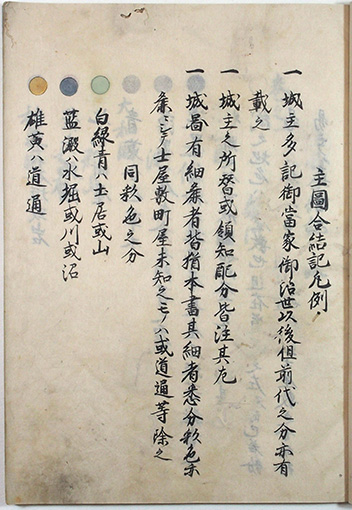 主圖合結記凡例
一 城主多記御當家御治世以後但前代之分亦有
載之
一 城主之所替或領知配分皆注其尤
一 城圖有細桒者皆猶本書其細者悉分彩色亦
桒ミテ士屋敷町屋未知之モノハ或道通等除之
同彩色之分
白緑青ハ土居或山
藍澱ハ水堀或川或沼
雄黄ハ道通